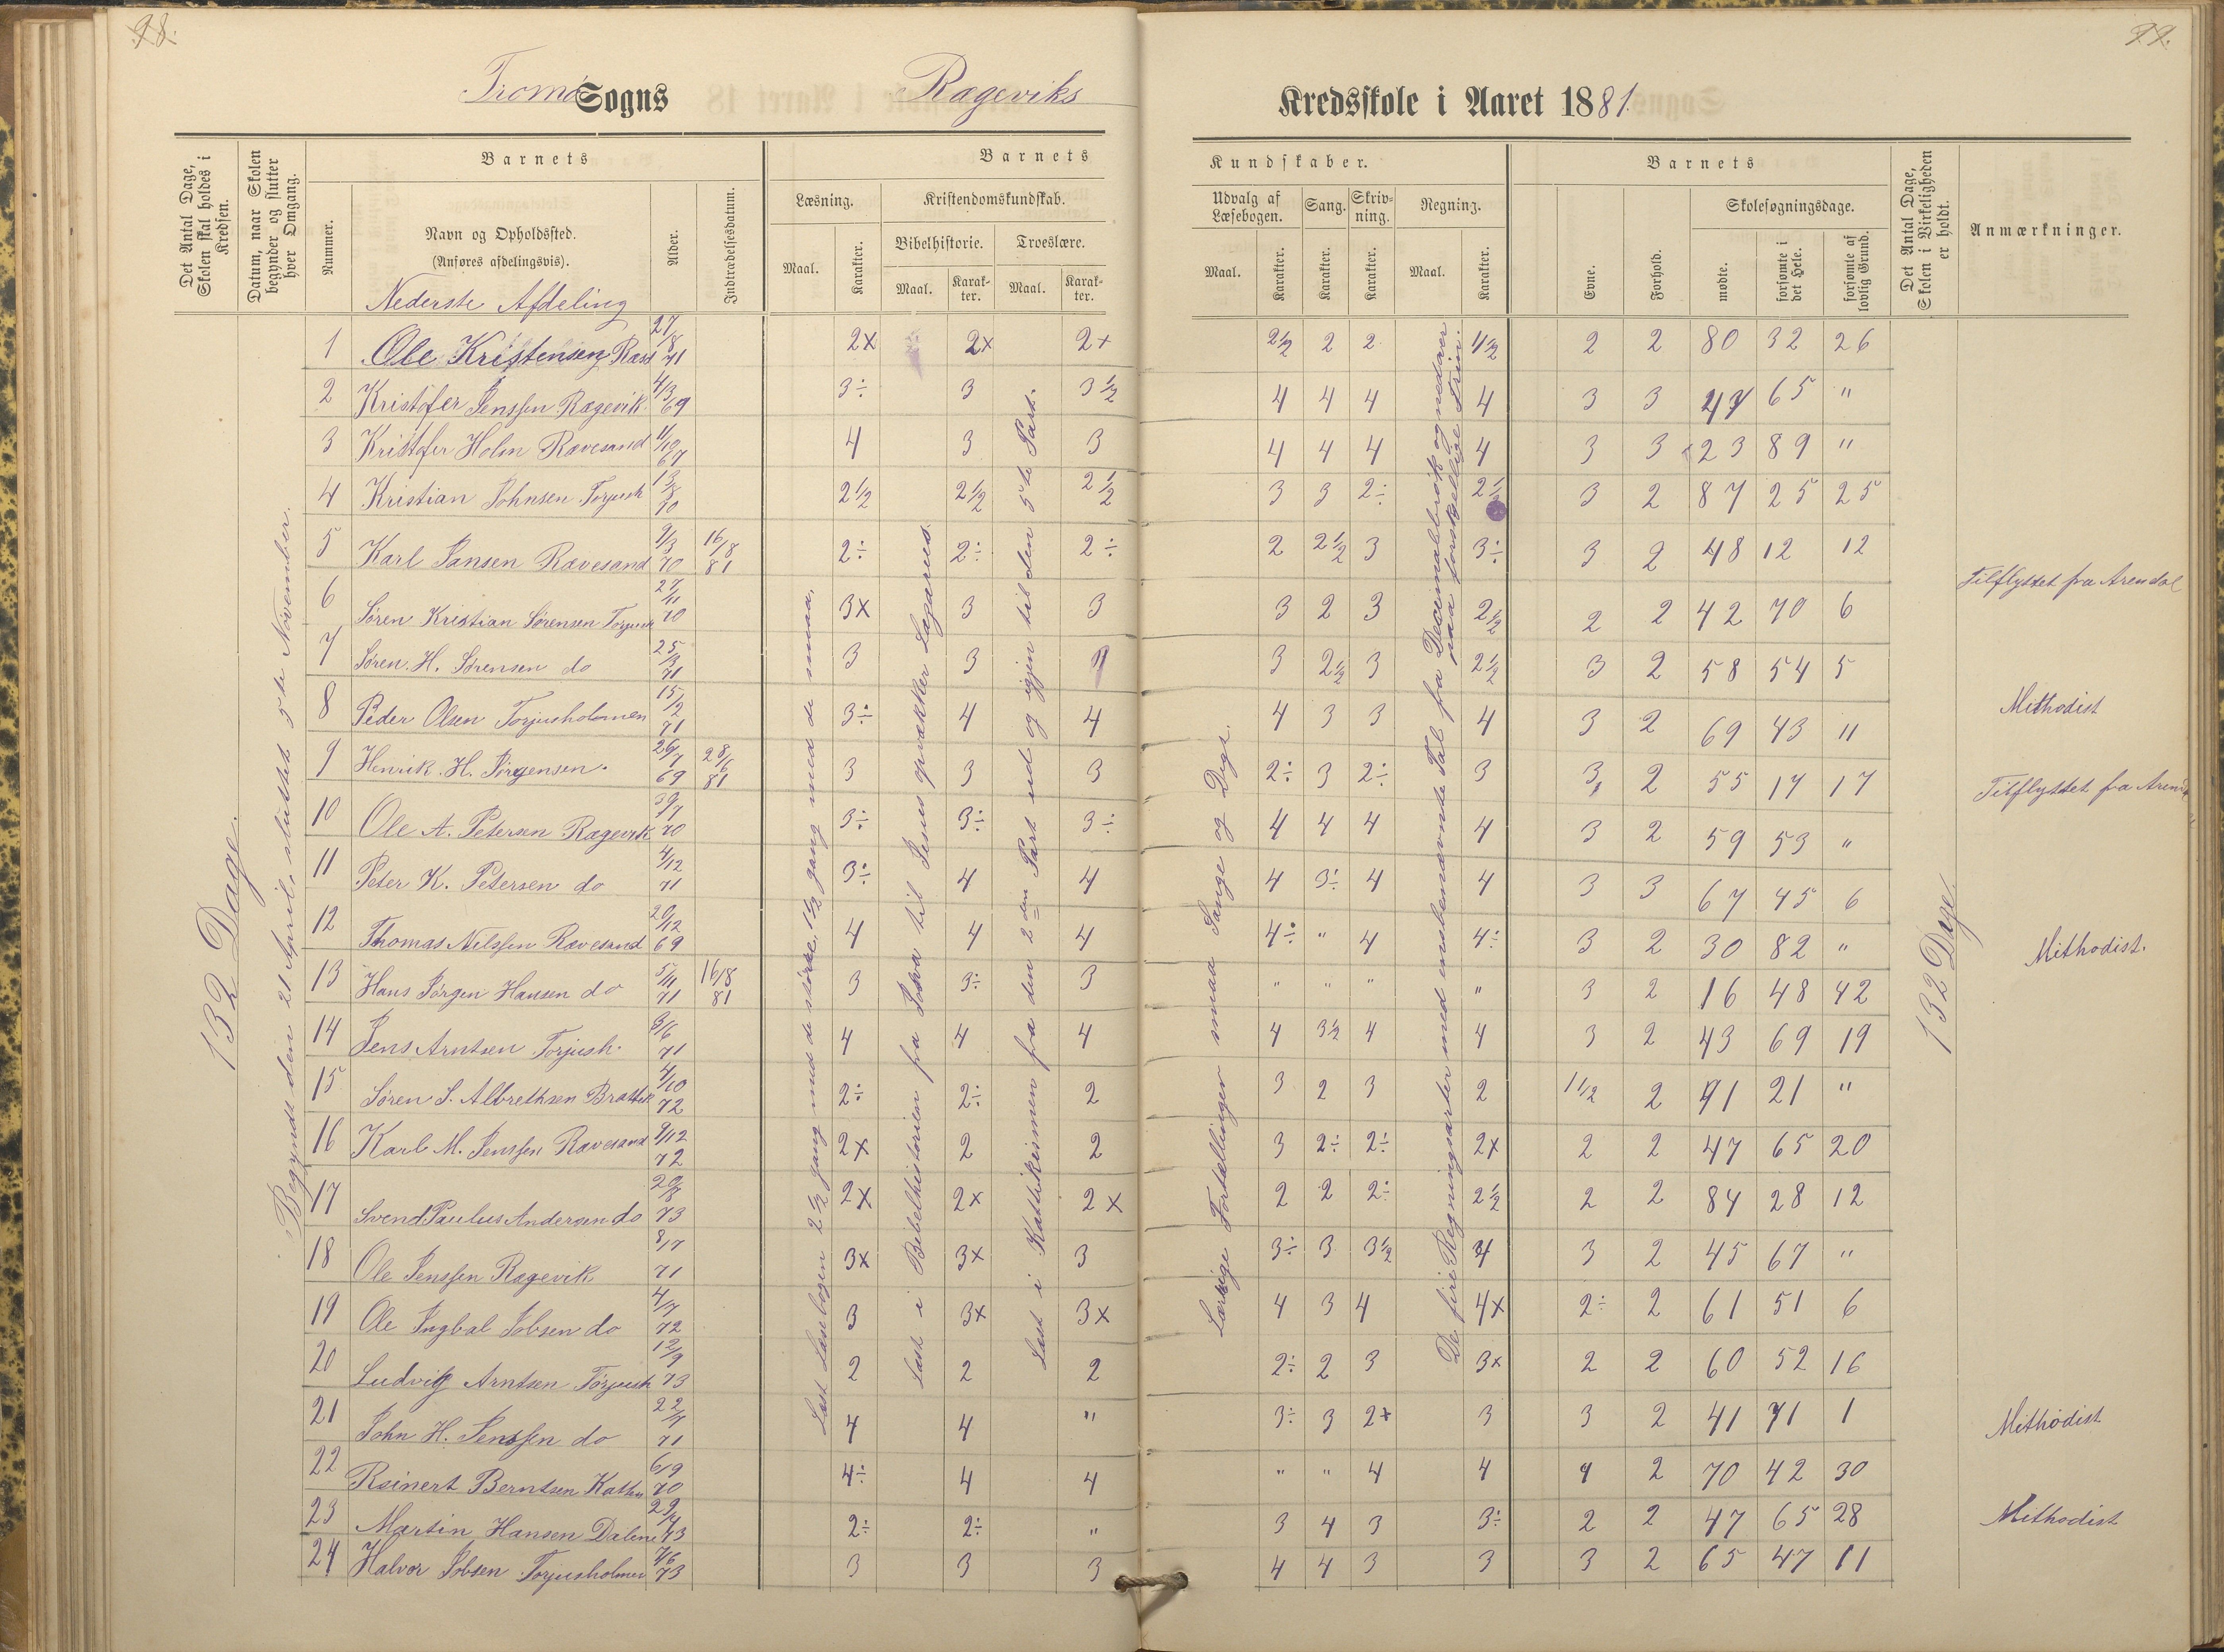 98.
99.
Tromø Sogns Rægeviks Kredsskole i Aaret 1881.
Det Antal Dage, Skolen skal holdes i Kredsen.
Datum, naar Skolen begynder og slutter hver Omgang.
Barnets
Nummer.
Navn og Opholdssted.
(Anføres afdelingsvis).
Alder.
Indtrædelsesdatum.
Barnets Kundskaber.
Læsning.
Maal.
Karakter.
Kristendomskundskab.
Bibelhistorie.
Maal.
Karakter.
Troeslære.
Maal.
Karakter.
Udvalg af Læsebogen.
Maal.
Karakter.
Sang.
Karakter.
Skrivning.
Karakter.
Regning.
Maal.
Karakter.
Barnets
Evne.
Forhold.
Skolesøgningsdage.
mødte.
forsømte i det Hele.
forsømte af lovlig Grund.
Det Antal Dage, Skolen i Virkeligheden er holdt.
Anmærkninger.
Nederste Afdeling
132 Dage.
Begyndt den 21 April, sluttet 5te November.
Læst Læsebogen 2½ gang med de större, 1½ gang med de smaa.
Læst i Bibelhistorien fra Josva til Jesus opvækker Lazarus.
Læst i Kattekismen fra den 2den Part ud og igjen til den 5te Part.
Lærrige Fortællinger smaa Sange og Digt.
De fire Regningsarter med ensbenævnte Tal fra Decimalbrök og nedover paa forskellige Trin.
132 Dage.
1 Ole Kristensen Ræv 27/8 71 2x 2x 2+ 2½ 2 2 1½ 2 2 80 32 26
2 Kristofer Jenssen Rægevik 4/3 69 3÷ 3 3½ 4 4 4 4 3 3 47 65 "
3 Kristofer Holm Rævesand 11/10 67 4 3 3 4 4 4 4 3 3 23 89 "
4 Kristian Johnsen Torjush 13/8 70 2½ 2½ 2½ 3 3 2÷ 2½ 3 2 87 25 25
5 Karl Jansen Rævesand 9/3 70 16/8 81 2÷ 2÷ 2÷ 2 2½ 3 3÷ 3 2 48 12 12 Tilflyttet fra Arendal
6 Søren Kristian Sørensen Torjush 27/11 70 3x 3 3 3 2 3 2½ 2 2 42 70 6
7 Søren H. Sørensen do 25/3 71 3 3 " 3 2½ 3 2½ 3 2 58 54 5 Methodist
8 Peder Olsen Torjusholmen 15/2 71 3÷ 4 4 4 3 3 4 3 2 69 43 11
9 Henrik H. Jörgensen. 26/7 69 28/6 81 3 3 3 2÷ 3 2÷ 3 3 2 55 17 17 Tilflyttet fra Arendal
10 Ole A. Petersen Rægevik 30/1 70 3÷ 3÷ 3÷ 4 4 4 4 3 2 59 53 "
11 Peter K. Petersen do 4/12 71 3÷ 4 4 4 3÷ 4 4 3 3 67 45 6
12 Thomas Nilssen Rævesand 20/12 69 4 4 4 4÷ " 4 4÷ 3 2 30 82 " Methodist.
13 Hans Jörgen Hansen do 5/11 71 16/8 81 3 3÷ 3 " " " " 3 2 16 48 42
14 Jens Arntsen Torjush. 3/6 71 4 4 4 4 3½ 4 4 3 2 43 69 19
15 Søren S. Albrethsen Brattek 4/10 72 2÷ 2÷ 2 3 2 3 2 1½ 2 91 21 "
16 Karl M. Jenssen Rævesand 9/12 72 2x 2 2 3 2÷ 2÷ 2x 2 2 47 65 20
17 Svend Paulus Andersen do 20/8 73 2x 2x 2x 2 2 2÷ 2½ 2 2 84 28 12
18 Ole Jenssen Rægevik 8/7 71 3x 3x 3 3÷ 3 3½ 4 3 2 45 67 "
19 Ole Ingbal Jobsen do 4/7 72 3 3x 3x 4 3 4 4x 2÷ 2 61 51 6
20 Ludvig Arntsen Törjush 12/9 73 2 2 2 2÷ 2 3 3x 2 2 60 52 16
21 John H. Jenssen do 22/7 71 4 4 " 3÷ 3 2+ 3 3 2 41 71 1 Methodist
22 Reinert Berntsen 6/9 70 4÷ 4 4 " " 4 4 4 2 70 42 30
23 Martin Hansen Dalene 29/4 73 2÷ 2÷ " 3 4 3 3÷ 2 2 47 65 28 Methodist
24 Halvor Jobsen Torjusholmen 7/6 73 3 3 3 4 4 3 3 3 2 65 47 11